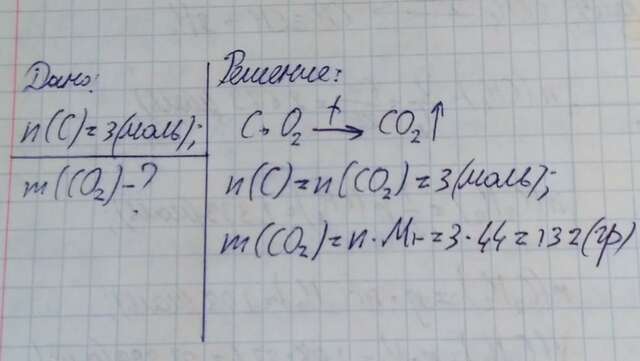 Дано:
n(C)=3(моль);
m(CO₂)-?
Решение:
t
C + O₂ → CO₂↑
n(C)=n(CO₂)=3(моль);
m(CO₂)=n·Mr=3·44=132(гр)